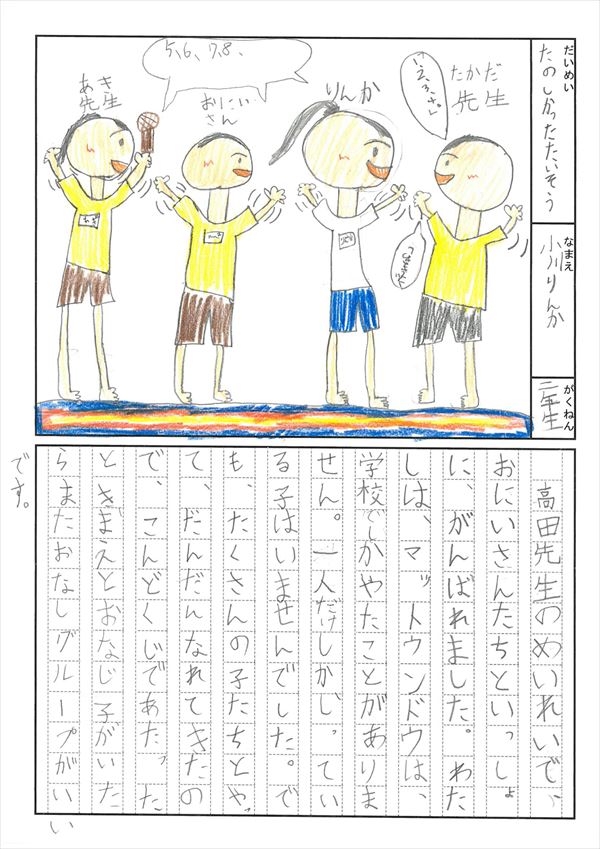 だいめい
たのしかったたいそう
なまえ
小川りんか
がくねん
二年生
たかだ
先生
りんか
おにい
さん
5、6、7、8、
あき
先生
高田先生のめいれいで、
おにいさんたちといっしょ
に、がんばれました。わた
しは、マットウンドウは、
学校でしかやたことがありま
せん。一人だけしかし、ってい
る子はいませんでした。で
も、たくさんの子たちとやっ
て、だんだんなれてきたの
で、こんどくじであたった
ときまえとおなじ子がいた
らまたおなしグループがい
い
です。